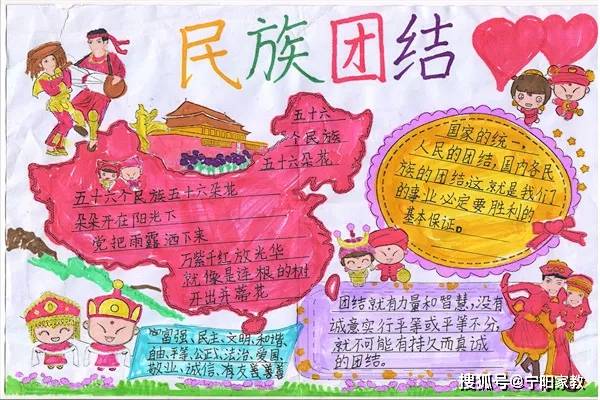 民族团结
五十六
个民族
五十六朵花
五十六个民族五十六朵花
朵朵开在阳光下
党把雨露洒下来
万紫千红放光华
就像是连根的树
开出并蒂花
国家的统一,
人民的团结,国内各民
族的团结,这就是我们
的事业必定要胜利的
基本保证。
富强、民主、文明、和谐
自由、平等、公正、法治、爱国、
敬业、诚信、有友善善善
团结就有力量和智慧,没有
诚意实行平等或平等不分,
就不可能有持久而真诚
的团结。
搜狐号@宁阳家教